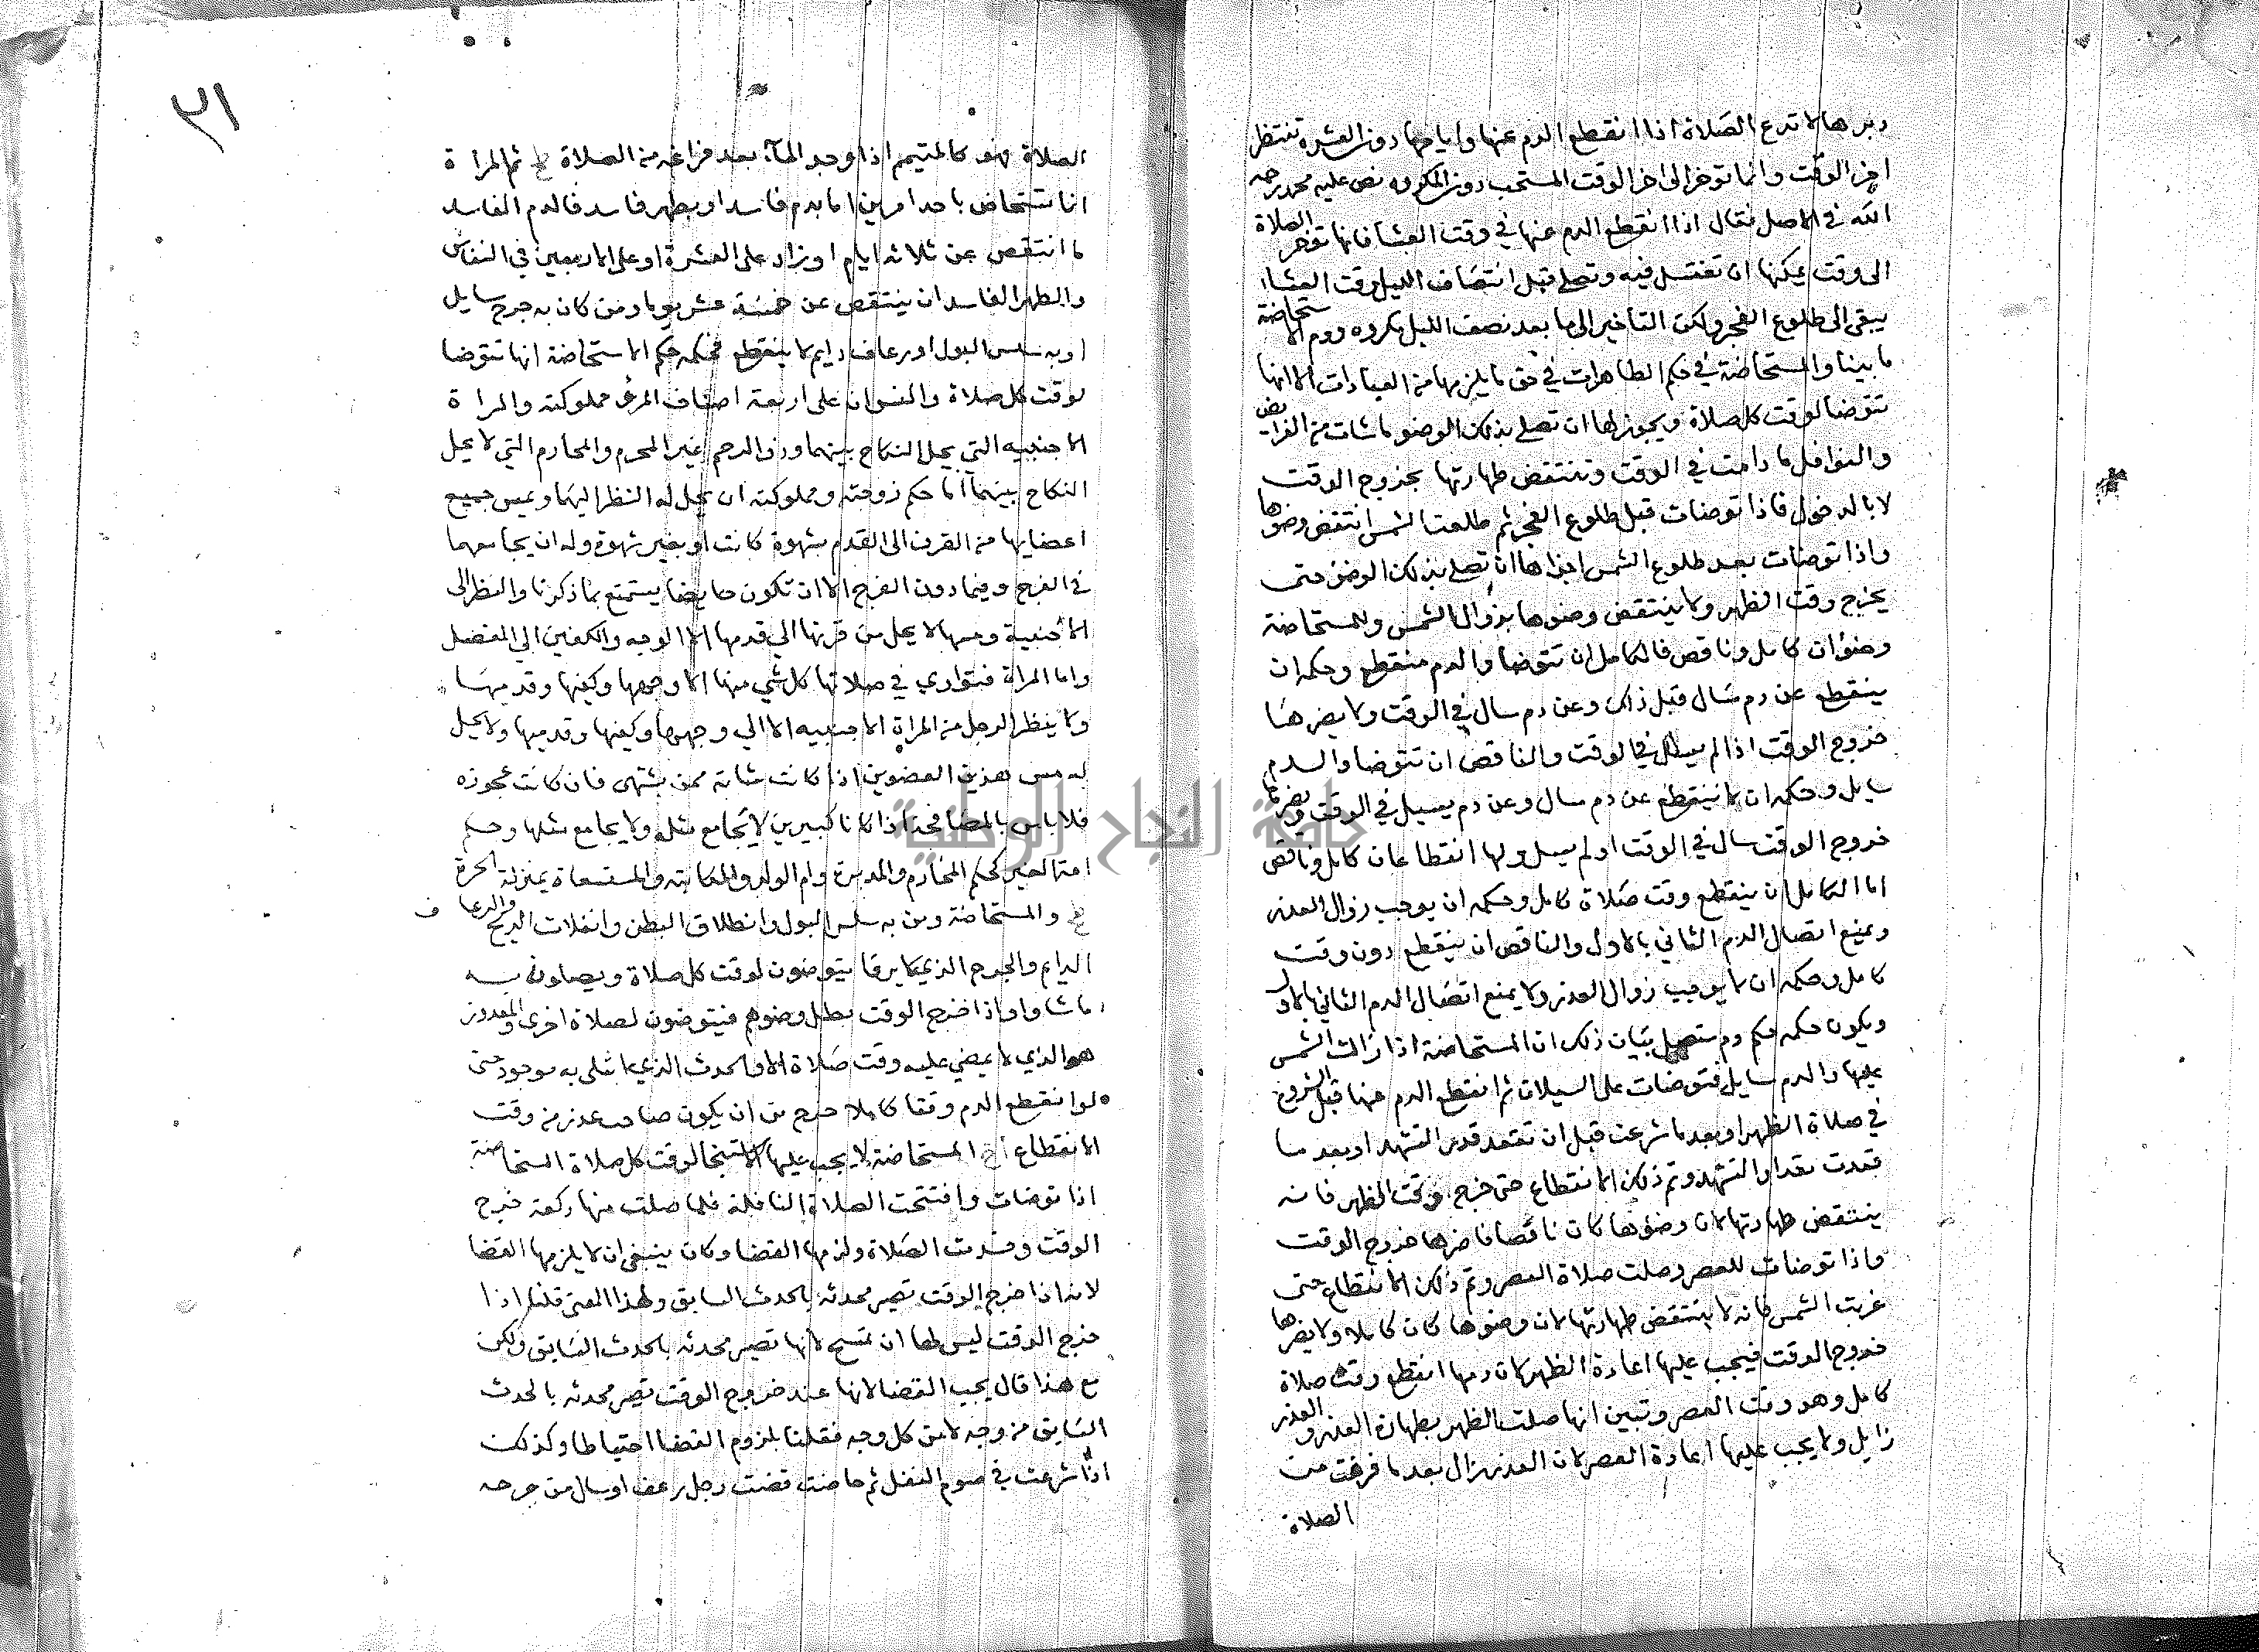 دبرها لا تدع الصلاة اذا انقطع الدم عنها وايامها دون العشرة تنتظر
اخر الوقت وانما توخر الى اخر الوقت المستحب دون المكروه نص عليه محمد رحمه
الله في الاصل فقال اذا انقطع الدم عنها في وقت العشا فانها توخر الصلاة
الى وقت يمكنها ان تغتسل فيه وتصلي قبل انتصاف الليل ووقت العشا
يبقى الى طلوع الفجر ولكن التاخير الى ما بعد نصف الليل مكروه ودم الاستحاضة
ما بينا والمستحاضة في حكم الطاهرات في حق ما يلزمها من العبادات الا انها
تتوضا لوقت كل صلاة ويجوز لها ان تصلي بذلك الوضو ما شات من الفرايض
والنوافل ما دامت في الوقت وتنتقض طهارتها بخروج الوقت
لا بالدخول فاذا توضات قبل طلوع الفجر ثم طلعت الشمس انتقض وضوها
واذا توضات بعد طلوع الشمس اجزاها ان تصلي بذلك الوضو حتى
يخرج وقت الظهر ولا ينتقض وضوها بزوال الشمس وللمستحاضة
وضوان كامل وناقص فالكامل ان تتوضا والدم منقطع وحكمه ان
ينقطع عن دم سال قبل ذلك وعن دم سال في الوقت ولا يضرها
خروج الوقت اذا لم يسل في الوقت والناقص ان تتوضا والدم
سايل وحكمه ان لا ينقطع عن دم سال وعن دم يسيل في الوقت ويضرها
خروج الوقت سال في الوقت او لم يسل ولها انقطاعان كامل وناقص
اما الكامل ان ينقطع وقت صلاة كامل وحكمه ان يوجب زوال العذر
ويمنع اتصال الدم الثاني بالاول والناقص ان ينقطع دون وقت
كامل وحكمه ان لا يوجب زوال العذر ولا يمنع اتصال الدم الثاني بالاول
ويكون حكمه حكم دم متصل بيان ذلك ان المستحاضة اذا زالت الشمس
عليها والدم سايل فتوضات على السيلان ثم انقطع الدم عنها قبل الشروع
في صلاة الظهر او بعد ما شرعت قبل ان تقعد قدر التشهد او بعد ما
قعدت مقدار التشهد وتم ذلك الانقطاع حتى خرج وقت الظهر فانه
ينتقض طهارتها لان وضوها كان ناقصا فاضرها خروج الوقت
واذا توضات للعصر وصلت صلاة العصر وتم ذلك الانقطاع حتى
غربت الشمس فانه لا ينتقض طهارتها لان وضوها كان كاملا ولا يضرها
خروج الوقت فيجب عليها اعادة الظهر لان دمها انقطع وقت صلاة
كامل وهو وقت العصر وتبين انها صلت الظهر بطهارة العذر والعذر
زايل ولا يجب عليها اعادة العصر لان العذر زال بعد ما فرغت من
الصلاة
٢١
الصلاة فهو كالمتيمم اذا وجد الماء بعد فراغه من الصلاة ثم المراة
انما تستحاض باحد امرين اما بدم فاسد او بطهر فاسد فالدم الفاسد
ما انتقص عن ثلاثة ايام او زاد على العشرة او على الاربعين في النفاس
والطهر الفاسد ان ينتقص عن خمسة عشر يوما ومن كان به جرح سايل
او به سلس البول او رعاف دايم لا ينقطع فحكمه حكم الاستحاضة انها تتوضا
لوقت كل صلاة والنسوان على اربعة اصناف مملوكته والمراة
الاجنبيه التي يحل النكاح بينهما وذو الرحم غير المحرم والمحارم التي لا يحل
النكاح بينهما اما حكم زوجته ومملوكته ان يحل له النظر اليها ويمس جميع
اعضايها من القرن الى القدم بشهوة كانت او بغير شهوة وله ان يجامعهما
في الفرج وفيما دون الفرج الا ان تكون حايضا يستمتع بما ذكرنا والنظر الى
الاجنبية ومسها لا يحل من قرنها الى قدمها الا الوجه والكفين الى المفصل
واما المراة فتواري في صلاتها كل شي منها الا وجهها وكفيها وقدميها
ولا ينظر الرجل من المراة الاجنبيه الا الى وجهها وكفيها وقدميها ولا يحل
له مس هذين العضوين اذا كانت شابة ممن يشتهى فان كانت عجوزه
فلا باس بالمصافحة اذا كانا كبيرين لا تجامع مثله ولا يجامع مثلها وحكم
امة الغير كحكم المحارم والمدبرة وام الولد والمكاتبه والمستسعاة بمنزلة الحرة
والمستحاضة ومن به سلس البول وانطلاق البطن وانفلات الريح والرعاف
الدايم والجرح الذي لا يرقا يتوضون لوقت كل صلاة ويصلون به
ما شاوا واذا خرج الوقت بطل وضوهم فيتوضون لصلاة اخرى والمعذور
هو الذي لا يمضي عليه وقت صلاة الا والحدث الذي ابتلى به موجود حتى
لو انقطع الدم وقتا كاملا خرج من ان يكون صاحب عذر من وقت
الانقطاع المستحاضة لا يجب عليها الاستنجا لوقت كل صلاة المستحاضة
اذا توضات وافتتحت الصلاة النافلة فلما صلت منها ركعة خرج
الوقت وفسدت الصلاة ولزمها القضا وكان ينبغي ان لا يلزمها القضا
لانه اذا خرج الوقت تصير محدثه بالحدث السابق ولهذا المعنى قلنا اذا
خرج الوقت ليس لها ان تمسح لانها تصير محدثه بالحدث السابق ولكن
مع هذا قال يجب القضا لانها عند خروج الوقت تصير محدثه بالحدث
السابق من وجه لا من كل وجه فقلنا بلزوم القضا احتياطا وكذلك
اذا شرعت في صوم النفل ثم حاضت قضت رجل رعف او سال من جرحه
جامعة النجاح الوطنية